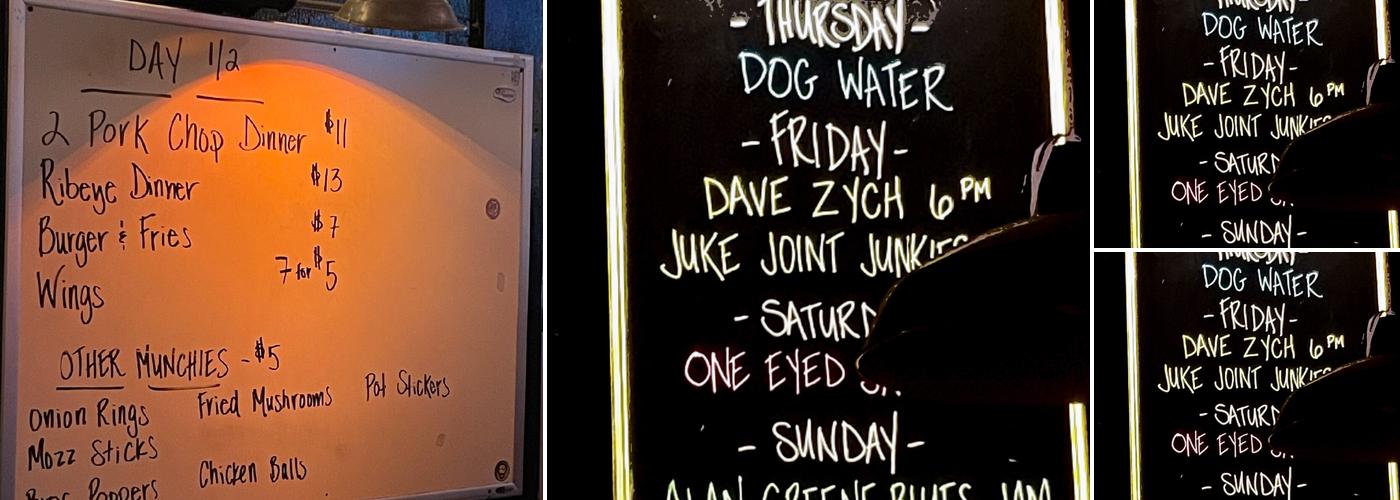 DAY 1/2
2 Pork Chop Dinner $11
Ribeye Dinner $13
Burger & Fries $7
Wings 7 for $5
OTHER MUNCHIES - $5
Onion Rings Fried Mushrooms Pot Stickers
Mozz Sticks
Chicken Balls
Poppers
- THURSDAY -
DOG WATER
- FRIDAY -
DAVE ZYCH 6PM
JUKE JOINT JUNKIES
- SATUR
ONE EYED
- SUNDAY -
ALAN GREENE BLUES JAM
THURSDAY
DOG WATER
- FRIDAY -
DAVE ZYCH 6PM
JUKE JOINT JUNKIES
- SATUR
ONE EYED
- SUNDAY -
THURSDAY
DOG WATER
- FRIDAY -
DAVE ZYCH 6PM
JUKE JOINT JUNKIES
- SATUR
ONE EYED
- SUNDAY -